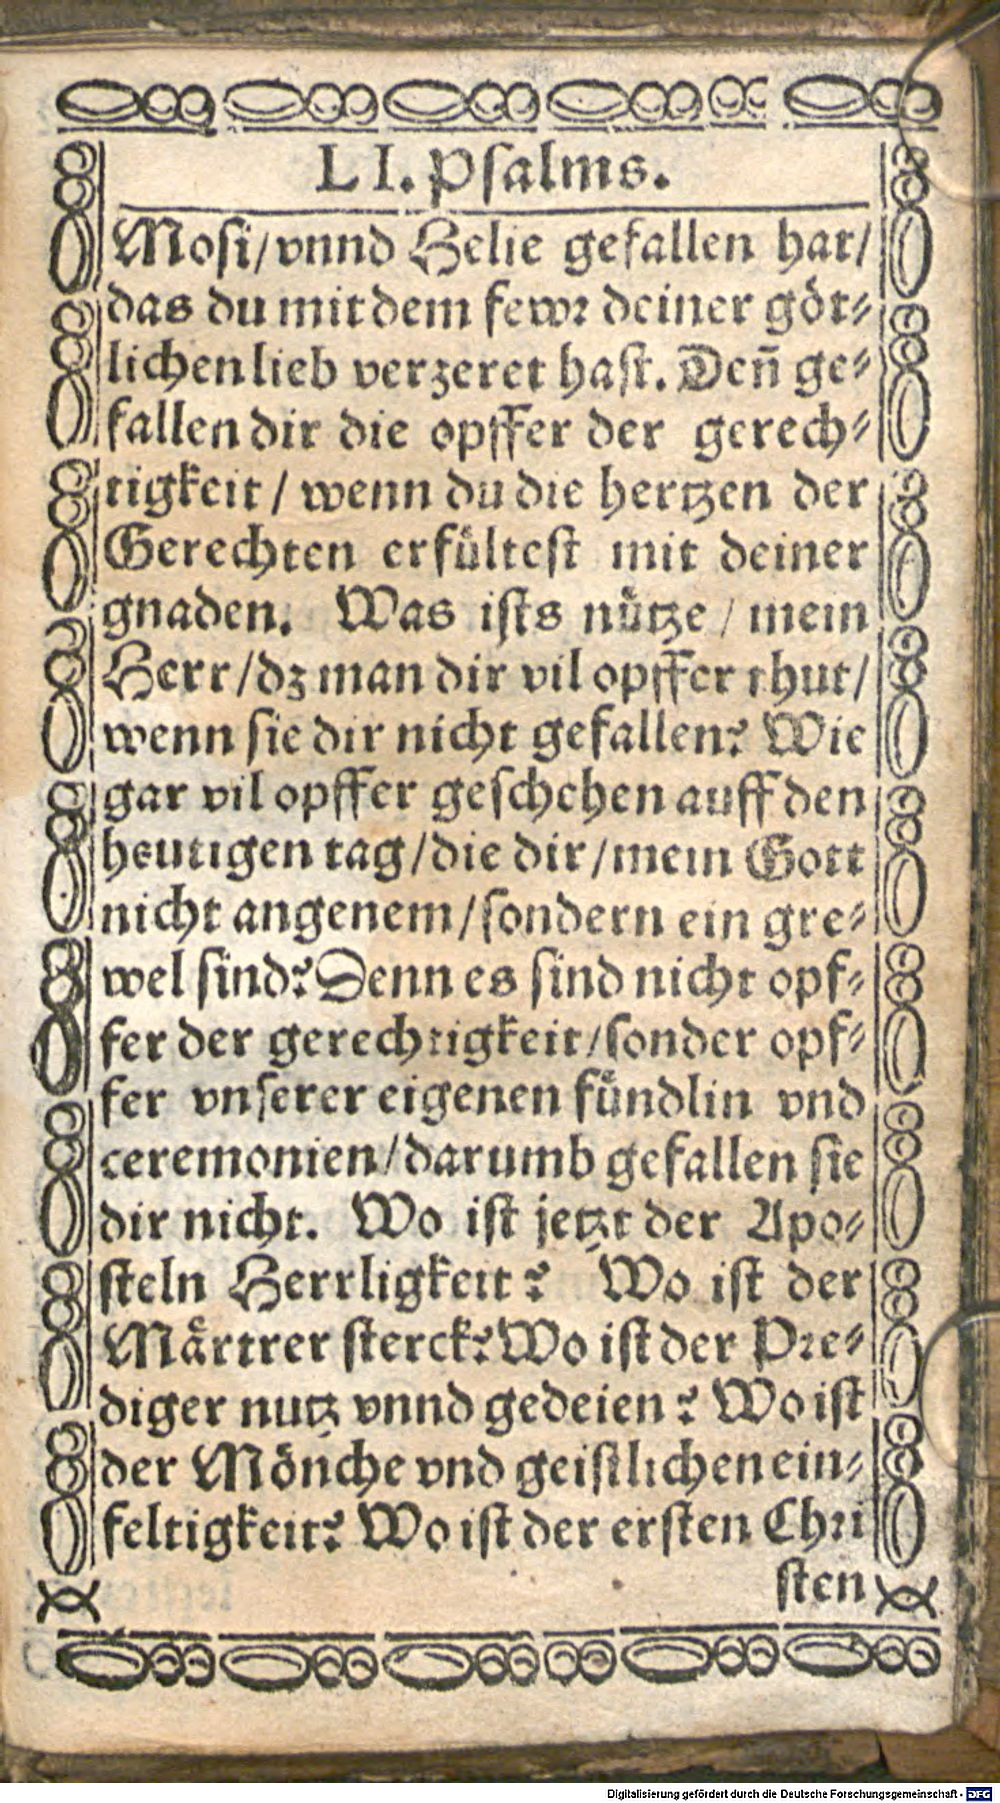 LI. Psalms.
Mosi/ vnnd Helie gefallen hat/
das du mit dem fewr deiner göt⸗
lichen lieb verzeret hast. Deñ ge⸗
fallen dir die opffer der gerech⸗
tigkeit / wenn du die hertzen der
Gerechten erfültest mit deiner
gnaden. Was ists nütze / mein
Herr/ dz man dir vil opffer thut/
wenn sie dir nicht gefallen? Wie
gar vil opffer geschehen auff den
heutigen tag/ die dir/ mein Gott
nicht angenem/ sondern ein gre⸗
wel sind? Denn es sind nicht opf⸗
fer der gerechtigkeit/ sonder opf⸗
fer vnserer eigenen fündlin vnd
ceremonien/ darumb gefallen sie
dir nicht. Wo ist jetzt der Apo⸗
steln Herrligkeit? Wo ist der
Märtrer sterck? Wo ist der Pre⸗
diger nutz vnnd gedeien? Wo ist
der Mönche vnd geistlichen ein⸗
feltigkeit? Wo ist der ersten Chri
sten
Digitalisierung gefördert durch die Deutsche Forschungsgemeinschaft - DFG